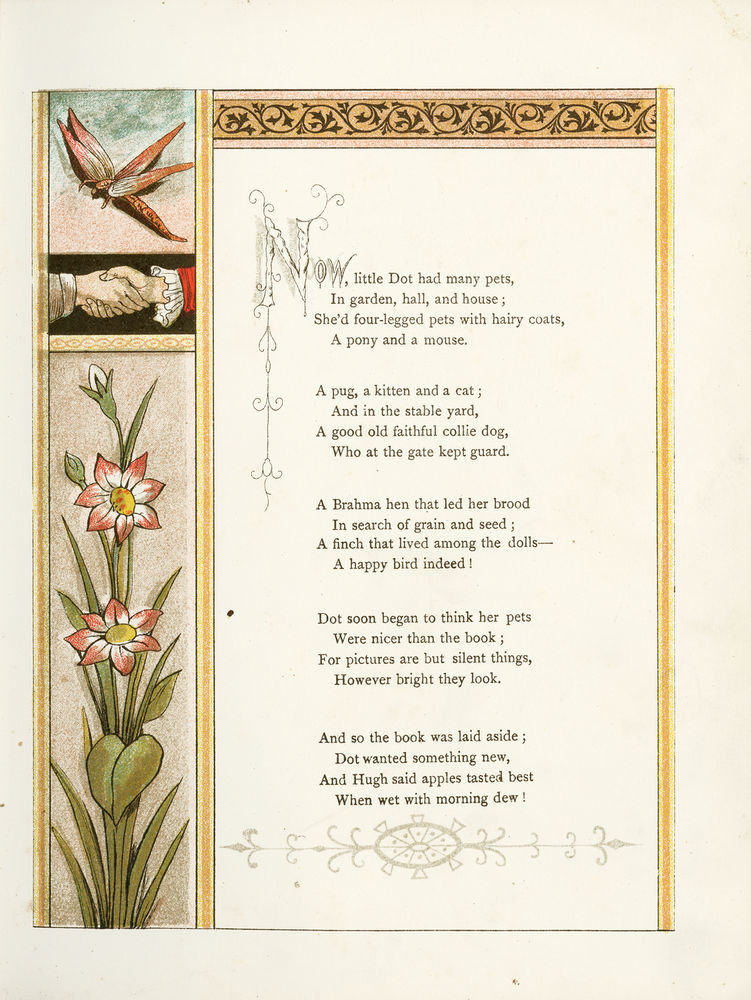 Now, little Dot had many pets,
In garden, hall, and house;
She'd four-legged pets with hairy coats,
A pony and a mouse.
A pug, a kitten and a cat;
And in the stable yard,
A good old faithful collie dog,
Who at the gate kept guard.
A Brahma hen that led her brood
In search of grain and seed;
A finch that lived among the dolls—
A happy bird indeed!
Dot soon began to think her pets
Were nicer than the book;
For pictures are but silent things,
However bright they look.
And so the book was laid aside;
Dot wanted something new,
And Hugh said apples tasted best
When wet with morning dew!